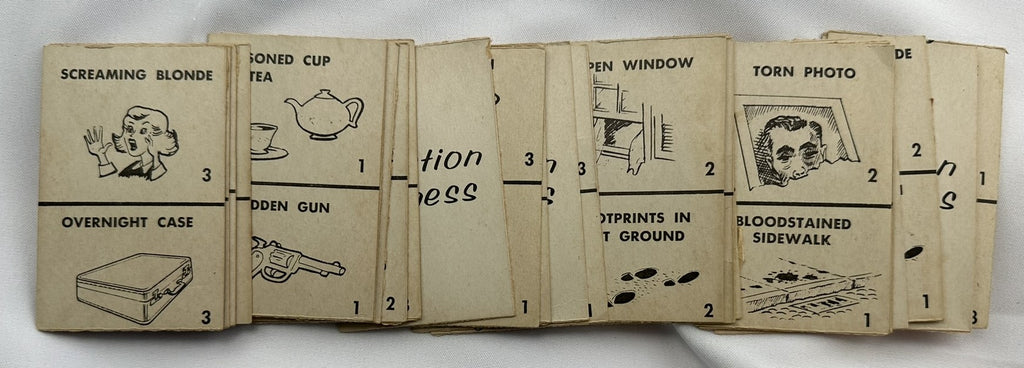 SCREAMING BLONDE
3
OVERNIGHT CASE
3
SONED CUP
TEA
1
DDEN GUN
1
2
tion
ess
3
3
PEN WINDOW
2
OTPRINTS IN
T GROUND
2
TORN PHOTO
2
BLOODSTAINED
SIDEWALK
1
DE
2
1
n
s
1
3